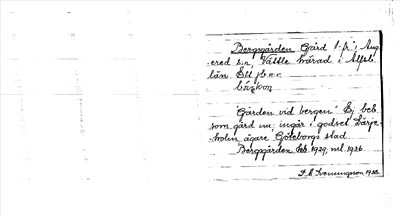 Bergsgården Gård 1 fr. i Ang-
ered sn, Vättle härad i Älfsb.
län.
Gården vid bergen. Ej beb.
som gård nu; ingår i godset Lärje-
holm, ägare Göteborgs stad.
Bergsgården 1929, 1936.